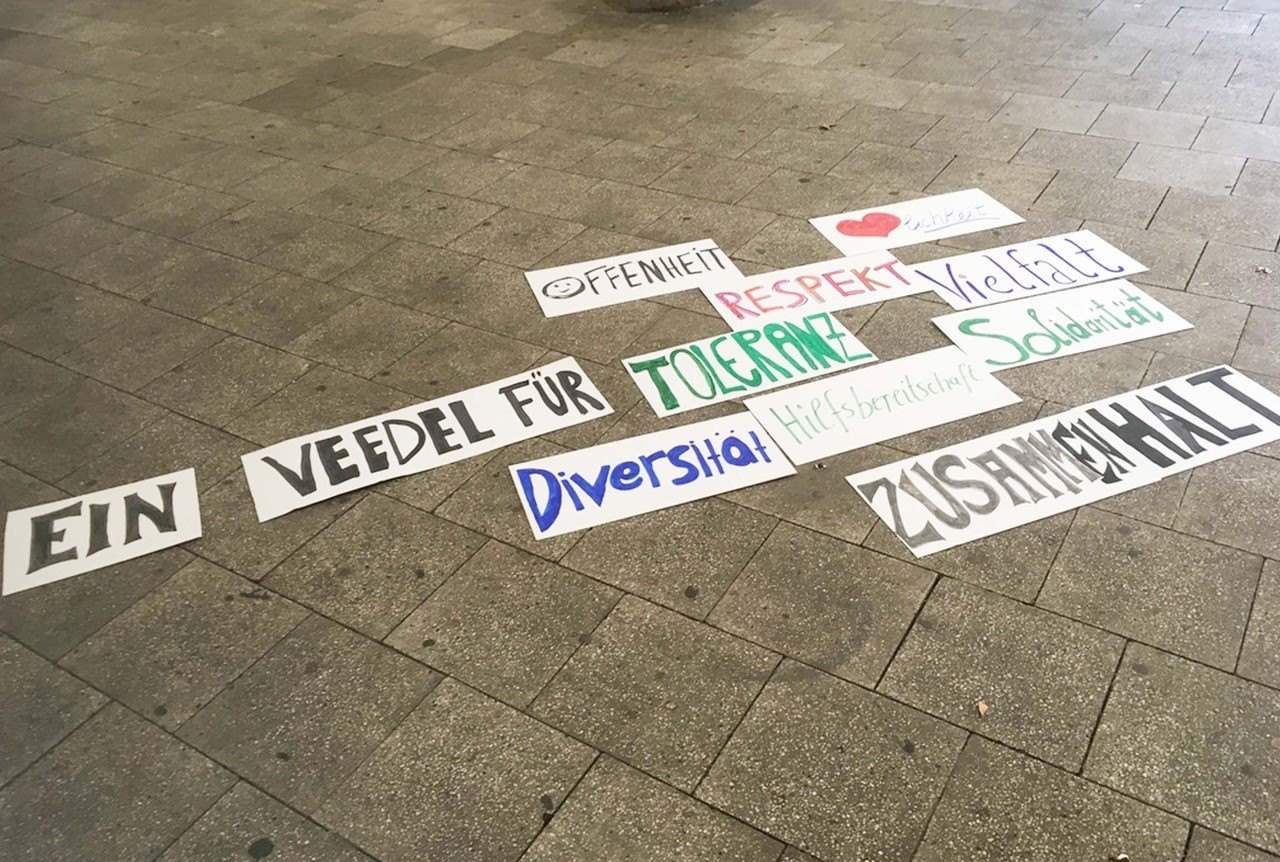 EIN
VEEDEL FÜR
OFFENHEIT
lichkeit
RESPEKT
Vielfalt
TOLERANZ
Solidarität
Hilfsbereitschaft
Diversität
ZUSAMMENHALT